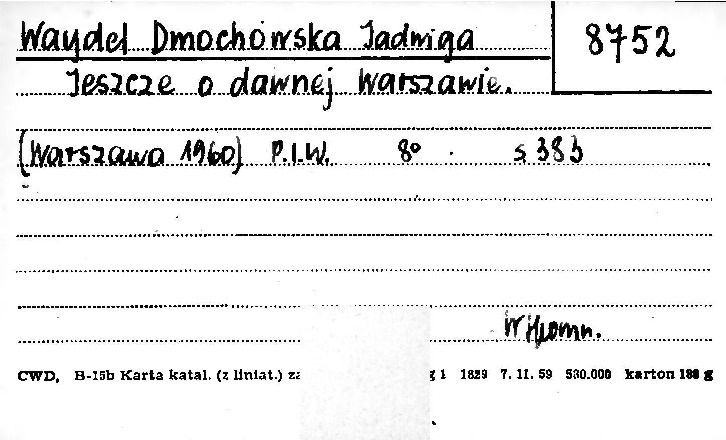 Waydel Dmochowska Jadwiga
8752
Jeszcze o dawnej Warszawie.
(Warszawa 1960) P.I.W. 8° . s 383
CWD, B-15b Karta katal. (z liniat.) za
g 1 1829 7. 11. 59 530.000 karton 180 g